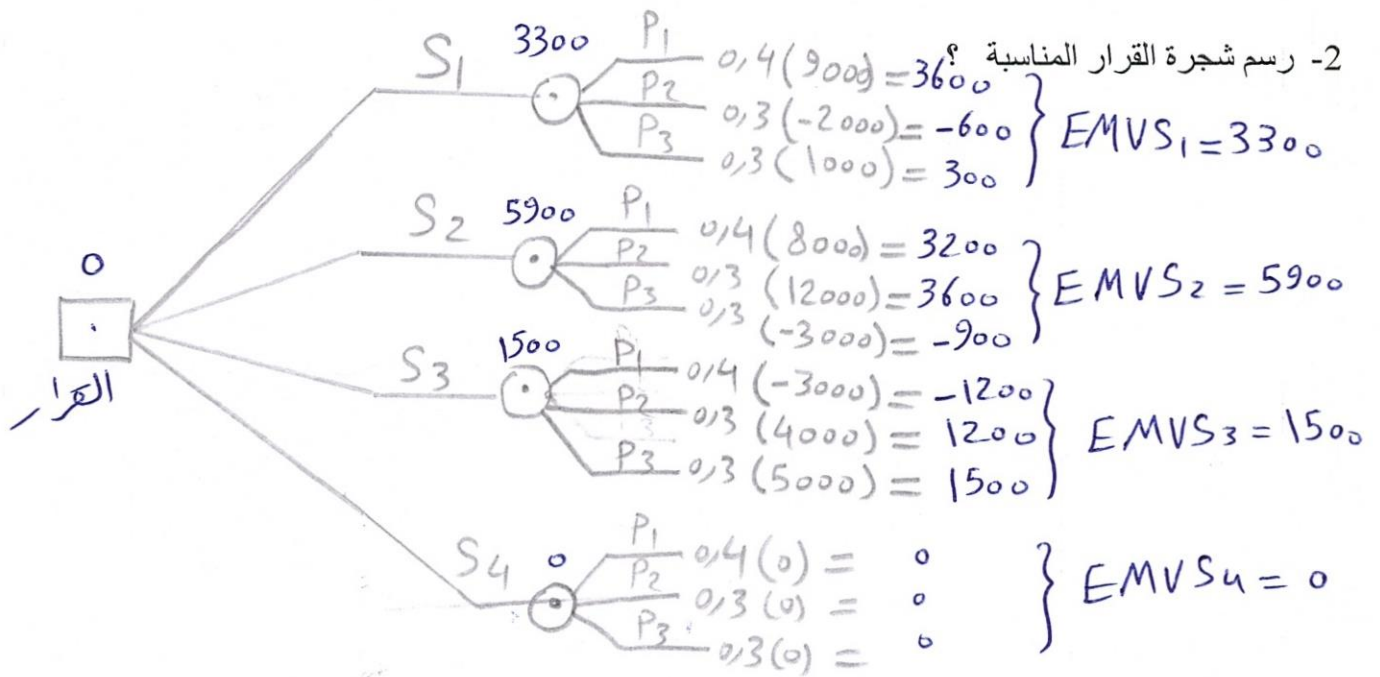 2- رسم شجرة القرار المناسبة ؟
S1 3300
P1 0,4 (9000) = 3600
P2 0,3 (-2000) = -600
P3 0,3 (1000) = 300
EMVS1 = 3300
S2 5900
P1 0,4 (8000) = 3200
P2 0,3 (12000) = 3600
P3 0,3 (-3000) = -900
EMVS2 = 5900
0
القرار
S3 1500
P1 0,4 (-3000) = -1200
P2 0,3 (4000) = 1200
P3 0,3 (5000) = 1500
EMVS3 = 1500
S4 0
P1 0,4 (0) = 0
P2 0,3 (0) = 0
P3 0,3 (0) = 0
EMVS4 = 0